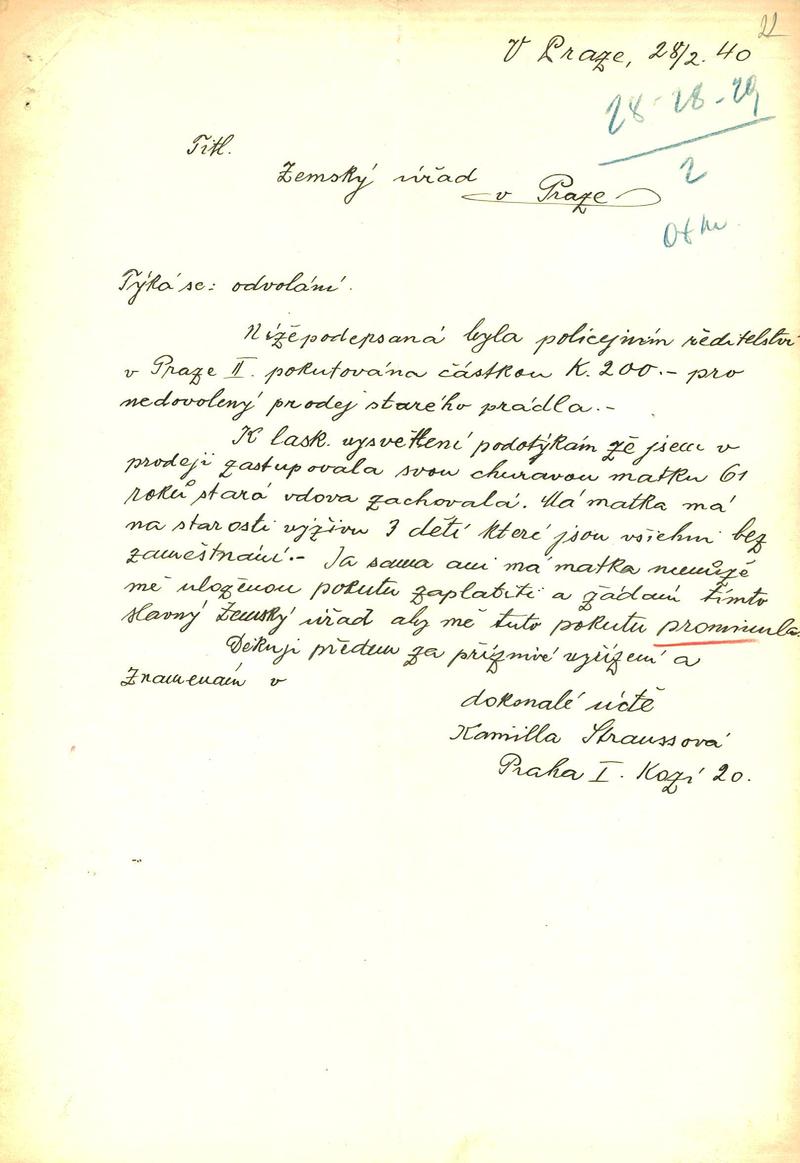 22
V Praze, 28/2. 40
28-28-29
2
Titl.
Zemský úřad
v Praze
Týká se: odvolání.
Nížepodepsaná byla policejním ředitelství
v Praze II. pokutována částkou K. 200.- pro
nedovolený prodej starého prádla.-
K lask. vysvětlení podotýkám že jsem v
prodeji zastupovala svou churavou matku 61
roků stará vdova zachovalá. Má matka má
na starosti výživu 3 dětí které jsou všichni bez
zaměstnání.- Ja sama ani má matka nemůže
mě uloženou pokutu zaplatiti a žádám tímto
slavný Zemský úřad aby mě tuto pokutu prominula.
Děkuji předem za příznivé vyřízení a
Znamenám v
dokonalé úctě
Kamilla Straussová
Praha I. Kozí 20.